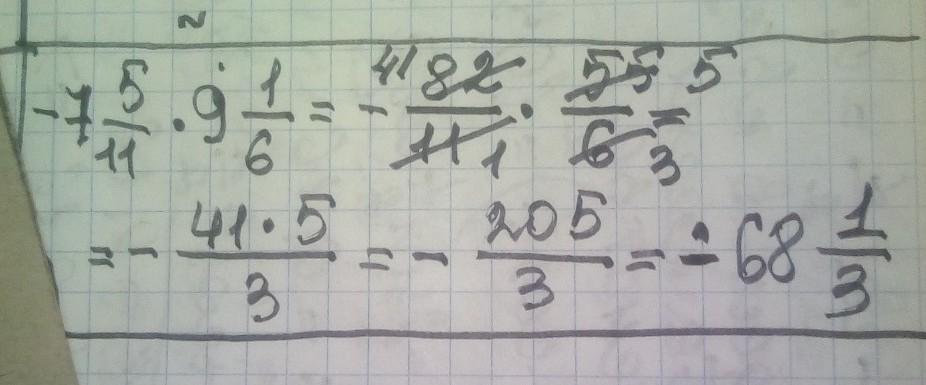 -7 5/11 · 9 1/6 = - 41 82/11 1 · 55/6 5 3 =
= - 41·5/3 = - 205/3 = - 68 1/3